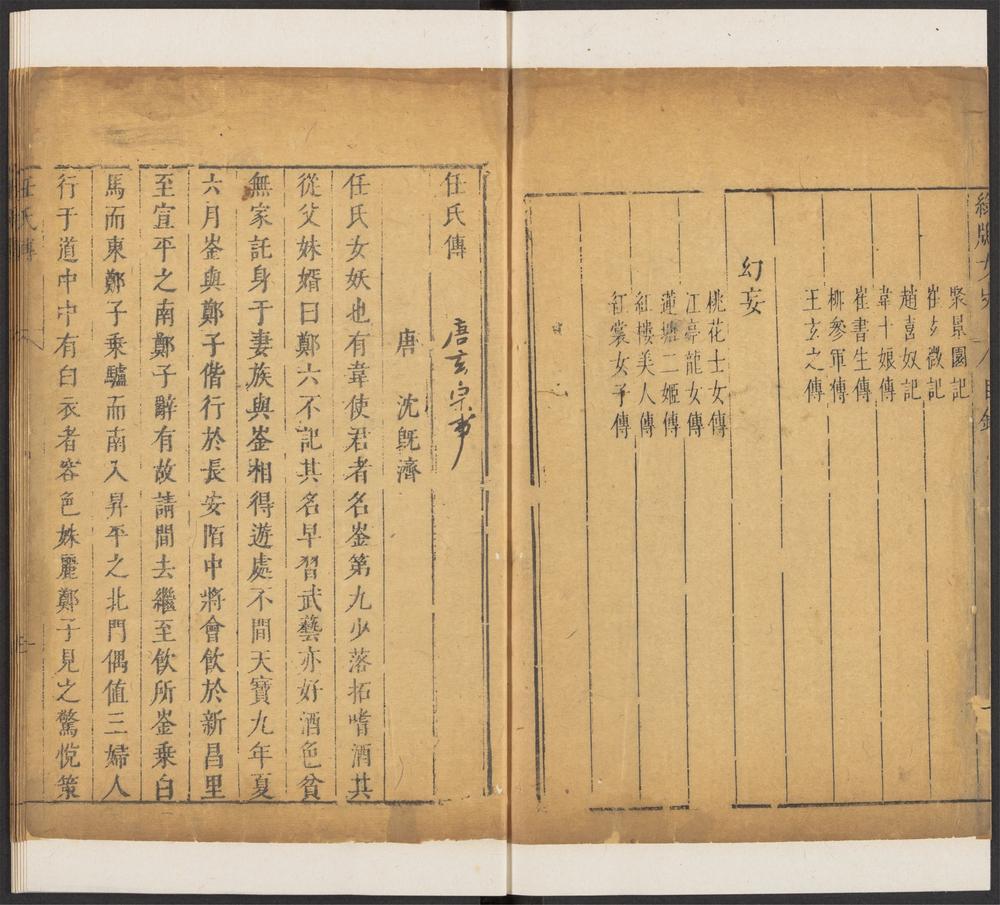 聚景園記
崔玄微記
趙喜奴記
韋十娘傳
崔書生傳
柳參軍傳
王玄之傳
幻妄
桃花士女傳
江亭龍女傳
蓮塘二姬傳
紅樓美人傳
紅裳女子傳
任氏傳
唐玄宗事
唐 沈旣濟
任氏女妖也有韋使君者名崟第九少落拓嗜酒其
從父妹婿曰鄭六不記其名早習武藝亦好酒色貧
無家託身于妻族與崟相得遊處不間天寶九年夏
六月崟與鄭子偕行於長安陌中將會飮於新昌里
至宣平之南鄭子辭有故請間去繼至飮所崟乘白
馬而東鄭子乘驢而南入昇平之北門偶值三婦人
行于道中中有白衣者容色姝麗鄭子見之驚悅策
任氏傳